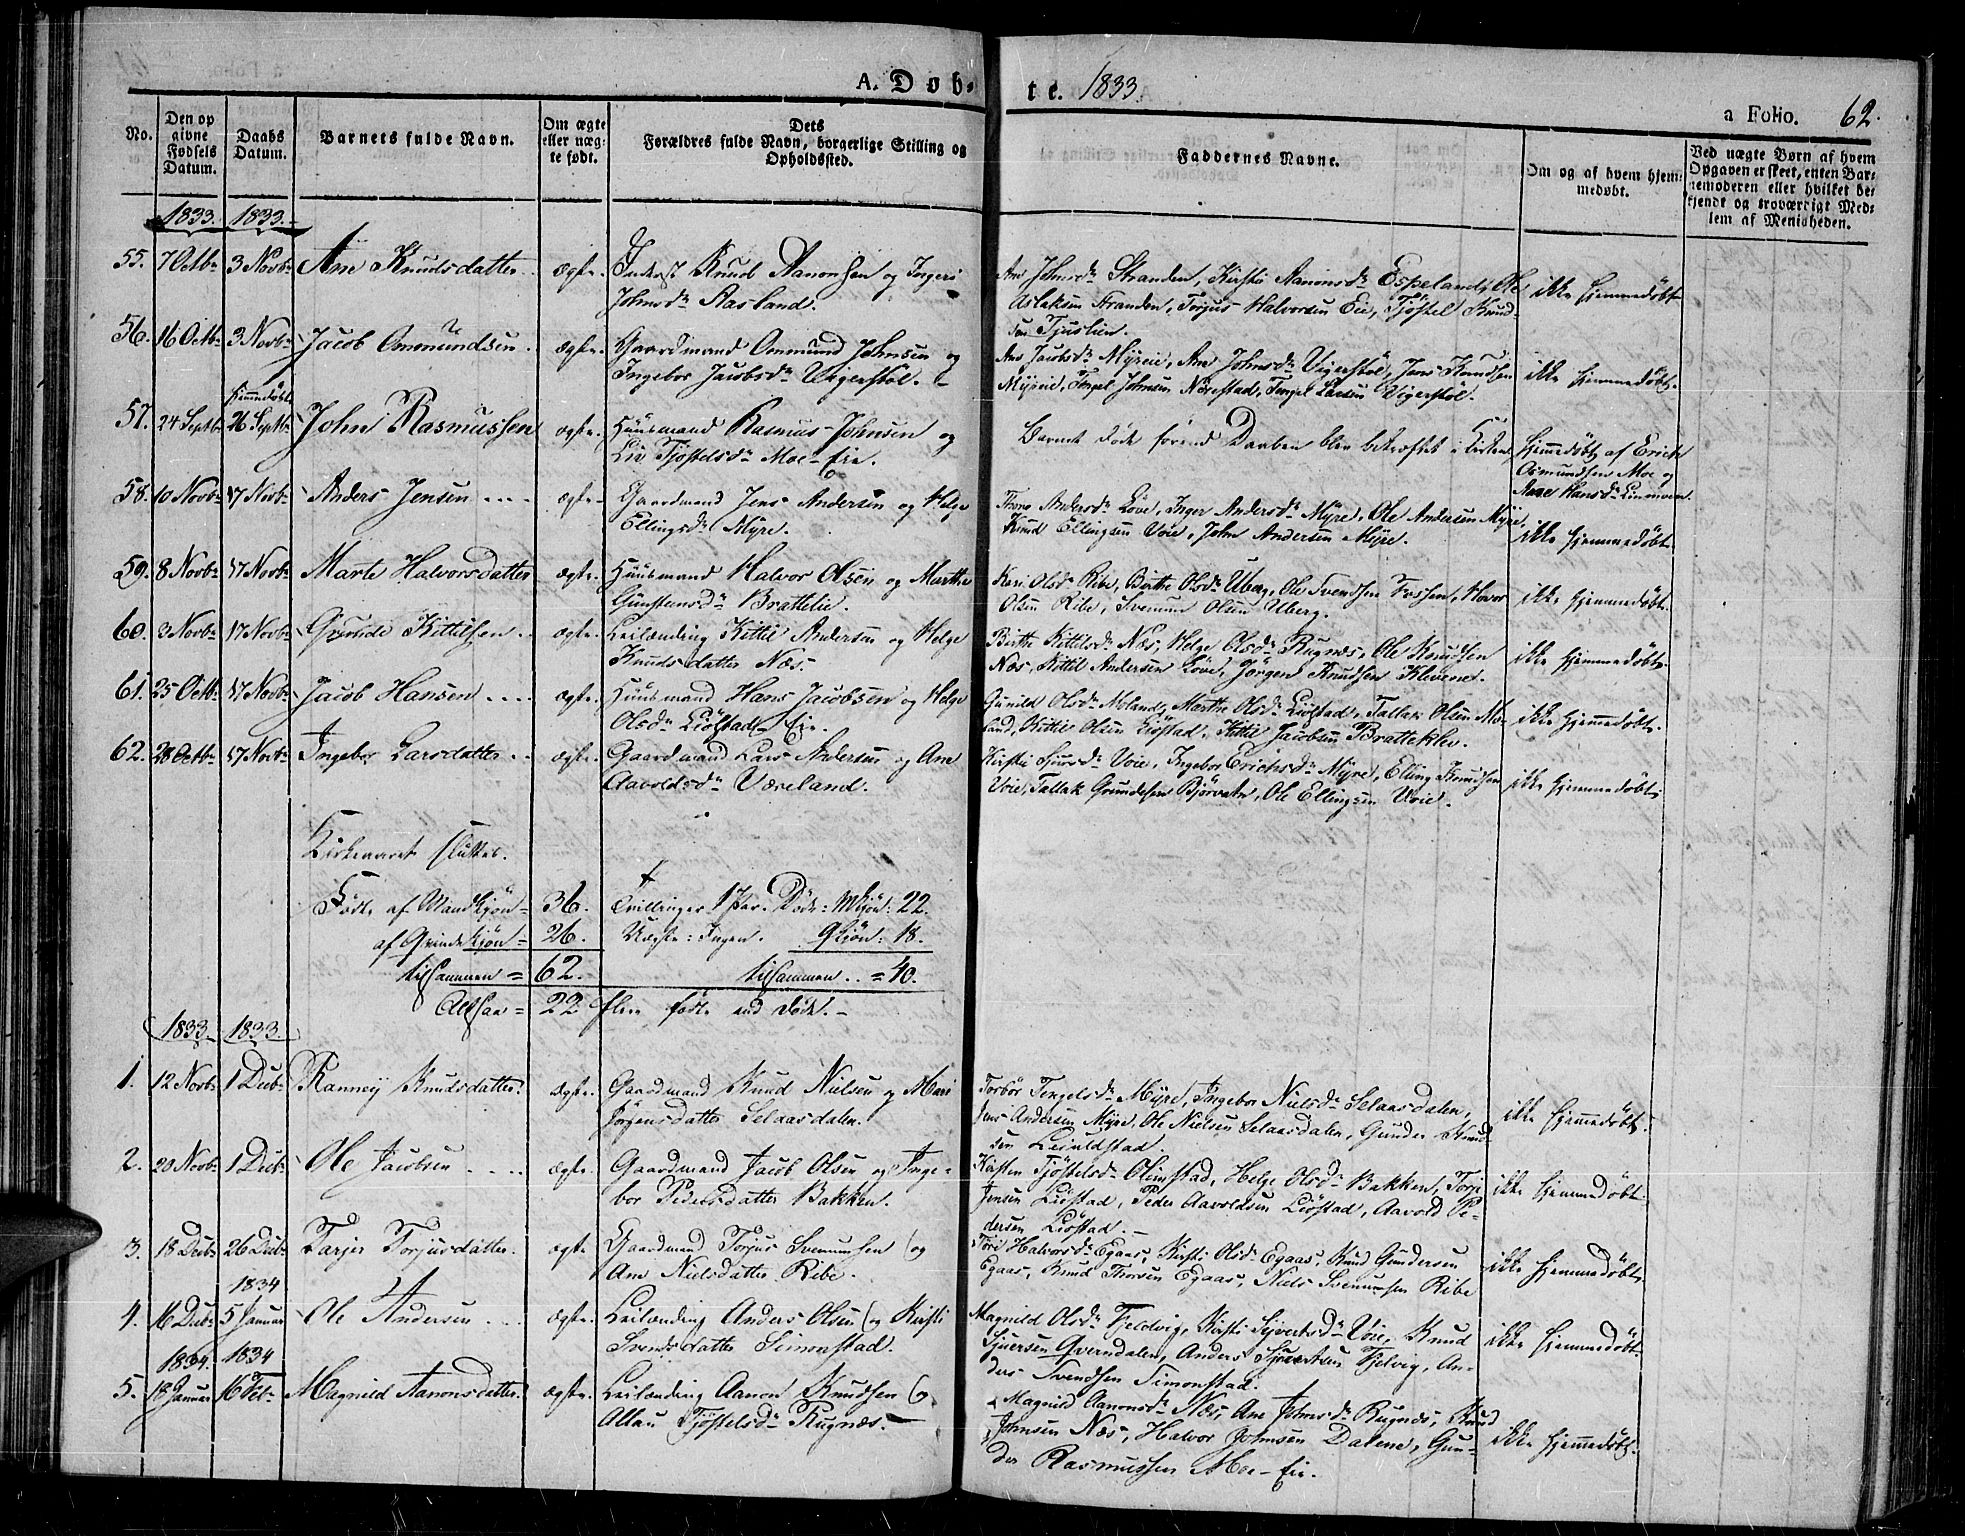 A. Døb-
te. 1833.
a Folio. 62.
No.
Den op
givne
Fødsels
Datum.
Daabs
Datum.
Barnets fulde Navn.
Om ægte
eller uæg-
te født.
Dets
Forældres fulde Navn, borgerlige Stilling og
Opholdssted.
Faddernes Navne.
Om og af hvem hjem-
medøbt.
Ved uægte Børn af hvem
Opgaven er skeet, enten Bar-
nemoderen eller hvilket be-
kjendt og troværdigt Med-
lem af Menigheden.
1833. 1833.
55. 7 Octbr 3 Novbr Ane Knudsdatter. ægte. Inderst Knud Aanonsen og Ingeri
Johnsdr Aasland.
Ane Johnsdr Stranden, Kirsti Aanonsdr Espeland, Ole
Aslaksen Stranden, Torjus Halvorsen Eie, Tjøstel Knud-
sen Tjuslien.
ikke hjemmedøbt
56. 16 Octbr 3 Novbr Jacob Ommundsen. ægte. Gaardmand Ommund Johnsen og
Ingebor Jacobsdr Vigerstøl.
Ane Jacobsdr Myreie, Ane Johnsdr Vigerstøl, Jens Knudsen
Myreie, Tengel Johnsen Nærestad, Tengel Larsen Vigerstøl.
ikke hjemmedøbt.
hjemmedøbt
57. 24 Septbr 26 Septbr John Rasmussen ægte. Huusmand Rasmus Johnsen og
Liv Tjøstelsdr Moe-Eie.
Barnet døde førend Daaben blev bekræftet i Kirken.
hjemmedøbt af Erich
Osmundsen Moe og
Anne Hansdr Linmoen
58. 10 Novbr 17 Novbr Anders Jensen ægte. Gaardmand Jens Andersen og Helge
Ellingsdr Myre.
Thone Andersdr Løve, Inger Andersdr Myre, Ole Andersen Myre,
Knud Ellingsen Voie, John Andersen Myre.
ikke hjemmedøbt
59. 8 Novbr 17 Novbr Marte Halvorsdatter ægte. Huusmand Halvor Olsen og Marthe
Gunstensdr Brattelie.
Kari Olsdr Ribe, Birthe Olsdr Uberg, Ole Svendsen Fossen, Hovor
Olsen Ribe, Svenum Olsen Uberg.
ikke hjemmedøbt.
60. 3 Novbr 17 Novbr Grunde Kittilsen. ægte. Leilænding Kittil Andersen og Helge
Knudsdatter Næs.
Birthe Kittilsdr Næs, Helge Olsdr Rugnæs, Ole Knudsen
Næs, Kittil Andersen Løve, Jørgen Knudsen Klevene.
ikke hjemmedøbt.
61. 25 Octbr 17 Novbr Jacob Hansen ægte. Huusmand Hans Jacobsen og Helge
Olsdr Liøstad-Eie.
Gunild Olsdr Moland, Marthe Olsdr Liøstad, Tallak Olsen Mo-
land, Kittil Olsen Liøstad, Kittil Jacobsen Bratteklev.
ikke hjemmedøbt.
62. 28 Octbr 17 Novbr Ingebor Larsdatter ægte. Gaardmand Lars Andersen og Ane
Aavoldsdr Væreland.
Kirsti Sjursdr Voie, Ingebor Erichsdr Myre, Elling Knudsen
Voie, Tallak Grundesen Bjørvatn, Ole Ellingsen Voie.
ikke hjemmedøbt.
Kirkeaaret sluttet.
Fødte af Mandkjøn = 36. Tvillinger 1 Par. Døde: Mkjøn: 22.
af Qvindekjøn = 26. Uægte: Ingen. Qkjøn: 18.
tilsammen = 62. tilsammen = 40.
Altsaa = 22 flere fødte end døde.
1833. 1833.
1. 12 Novbr 1 Decbr Ranney Knudsdatter. ægte. Gaardmand Knud Nielsen og Mari
Jørgensdatter Selaasdalen.
Torbor Tengelsdr Myre, Ingebor Nielsdr Selaasdalen,
Jens Andersen Myre, Ole Nielsen Selaasdalen, Gunder Knud-
sen Lejuldstad.
ikke hjemmedøbt.
2. 20 Novbr 1 Decbr Ole Jacobsen ægte. Gaardmand Jacob Olsen og Inge-
bor Pedersdatter Bakken.
Kirsten Tjøstelsdr Olimstad, Helge Olsdr Bakken, Torje
Jensen Liøstad, Peder Aavoldsen Liøstad, Aavold Pe-
dersen Liøstad.
ikke hjemmedøbt
3. 18 Decbr 26 Decbr Tarjer Torjusdatter. ægte Gaardmand Torjus Svenumsen og
Ane Nielsdatter Ribe.
Tore Halvorsdr Egaas, Kirsti Olsdr Egaas, Knud Gundersen
Egaas, Knud Thorsen Egaas, Niels Svenumsen Ribe
ikke hjemmedøbt.
1834
4. 16 Decbr 5 Januar Ole Andersen ægte. Leilænding Anders Olsen og Kirsti
Svendsdatter Simonstad.
Magnild Olsdr Fjeldvig, Kirsti Sjvertsdr Voie, Knud
Sjuersen Qverndalen, Anders Sjvertsen Fjelvig, An-
ders Svendsen Simonstad.
ikke hjemmedøbt.
1834. 1834
5. 18 Januar 16 Febr Magnild Aanonsdatter. ægte. Leilænding Aanon Knudsen og
Allau Tjøstelsdr Rugnæs.
Magnild Aanonsdr Næs, Ane Johnsdr Rugnæs, Knud
Johnsen Næs, Halvor Johnsen Dalene, Gun-
der Rasmussen Moe-Eie.
ikke hjemmedøbt.